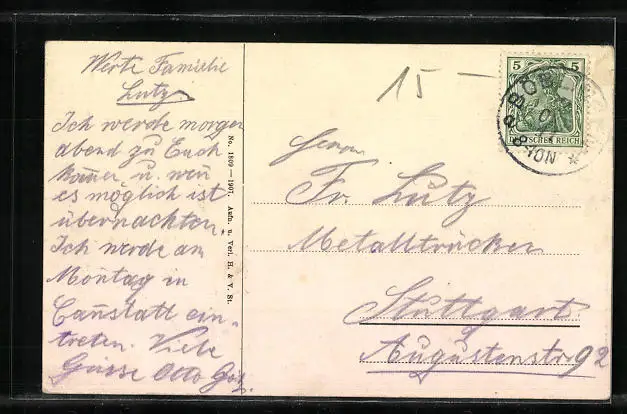 Werte Familie
Lutz
Ich werde morgen
abend zu Euch
kom̄en u. wen̄
es möglich ist
übernachten.
Ich werde am
Montag in
Can̄statt ein-
treten. Viele
Grüsse Otto
No. 1809 — 1907. Aufn. u. Verl. H. & V. St.
15 —
Herrn
Fr. Lutz
Metalldrücker
Stuttgart
Augustenstr 92
5 5
DEUTSCHES REICH